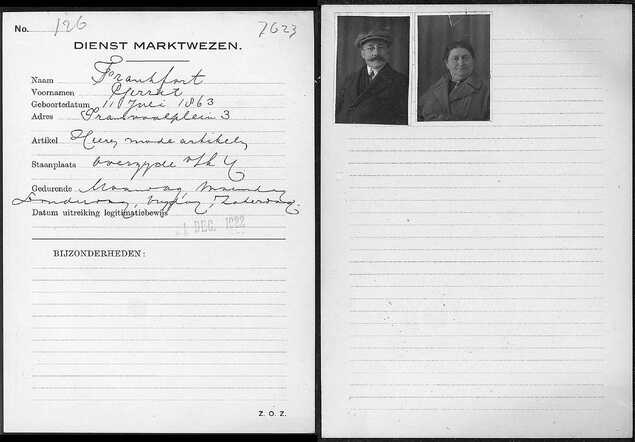 No. 126 7623
DIENST MARKTWEZEN.
Naam Frankfort
Voornamen Gerrit
Geboortedatum 11 Juli 1863
Adres Transvaalplein 3
Artikel Heeren mode artikelen
Staanplaats overzyde
Gedurende Maandag
Donderdag, Vrydag, Zaterdag.
Datum uitreiking legitimatiebewijs
1 DEC. 1922
BIJZONDERHEDEN:
Z. O. Z.